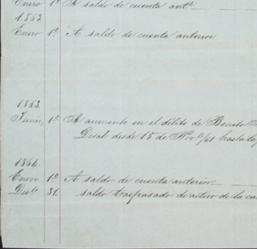 Enero 1º A saldo de cuenta antr.
1863
Enero 1º A saldo de cuenta anterior
1863.
Junio, 1º A aumento en el débito de Benito
Dical desde 15 de Nove/61 hasta
1864.
Enero 1º A saldo de cuenta anterior
Dicbe 31. saldo traspasado de activo de la ca